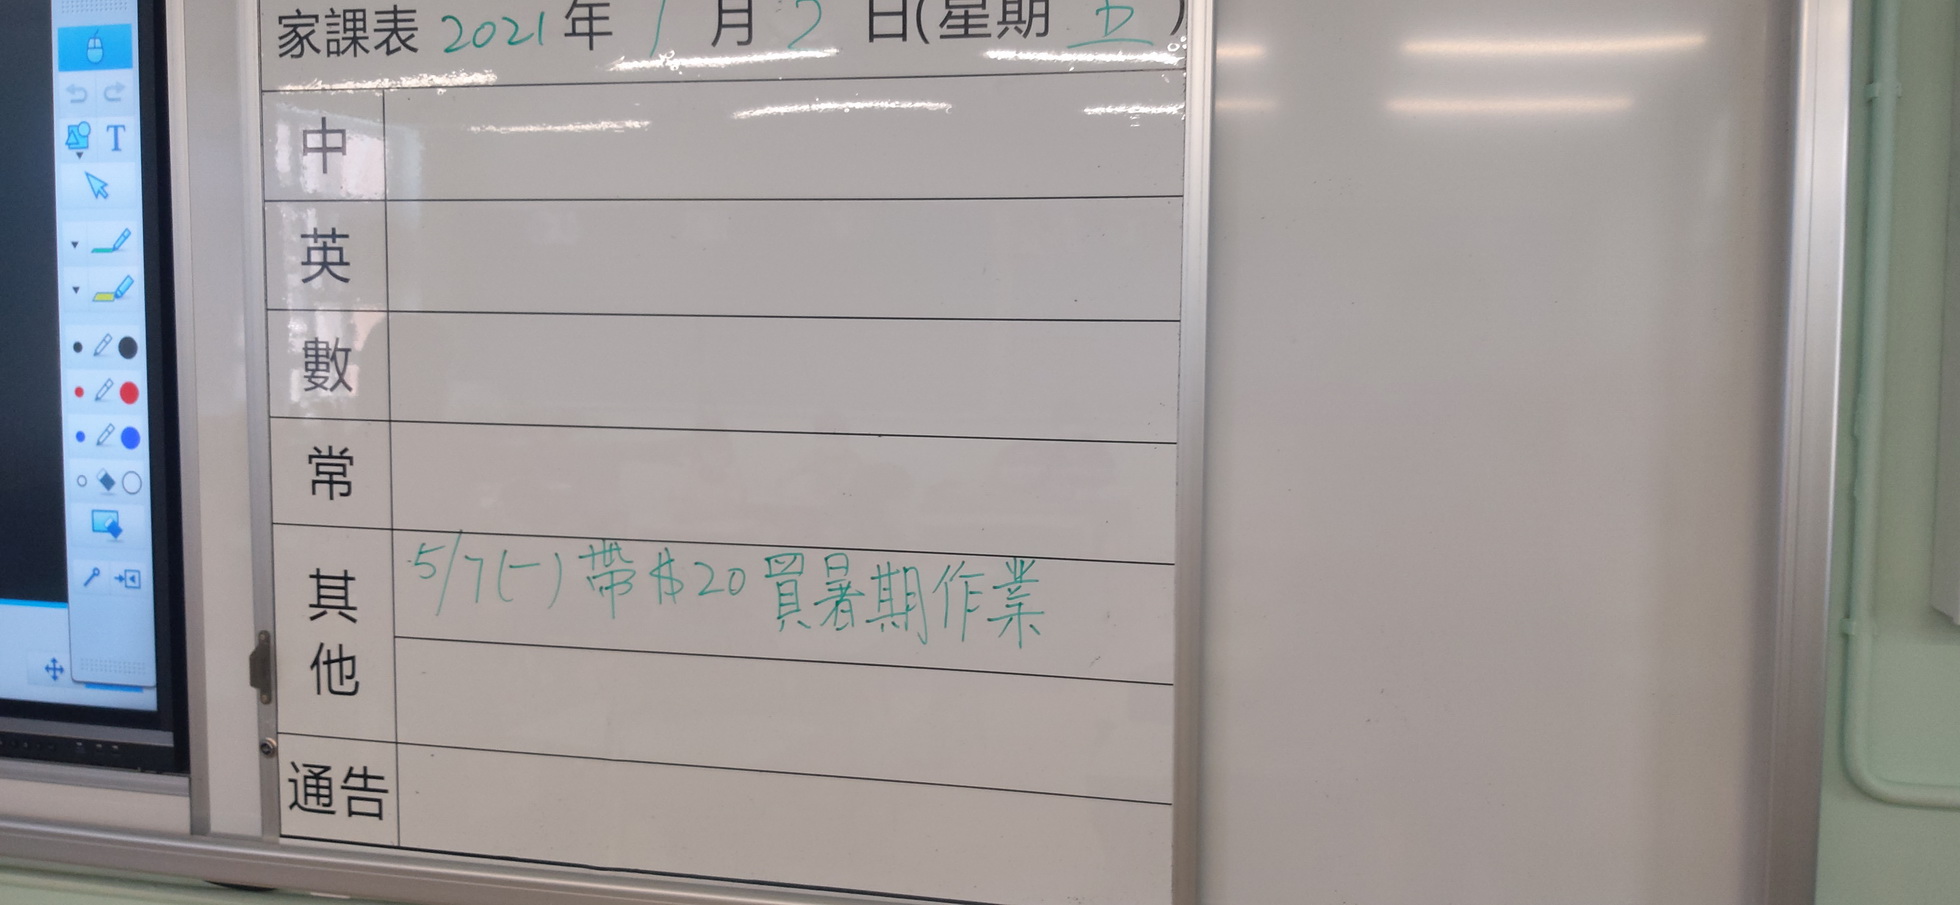 家課表 2021 年 7 月 2 日(星期 五)
T
中
英
數
常
其他
5/7(一)帶$20買暑期作業
通告